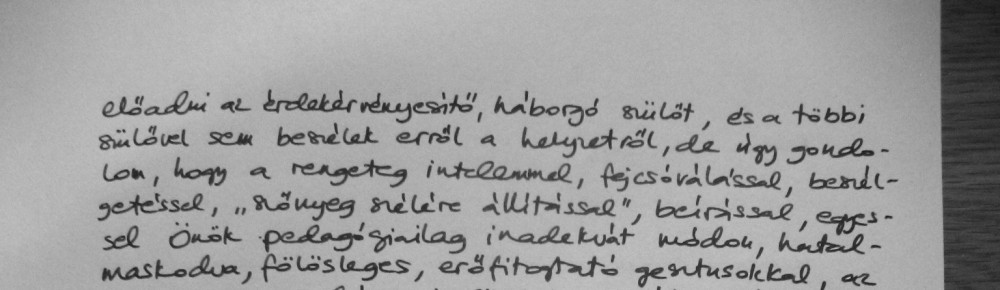 előadni az érdekérvényesítő, háborgó szülőt, és a többi
szülővel sem beszélek erről a helyzetről, de úgy gondo-
lom, hogy a rengeteg intelemmel, fejcsóválással, beszél-
getéssel, „szőnyeg szélére állítással", beírással, egyes-
sel Önök pedagógiailag inadekvát módon, hatal-
maskodva, fölösleges, erőfitogtató gesztusokkal, az